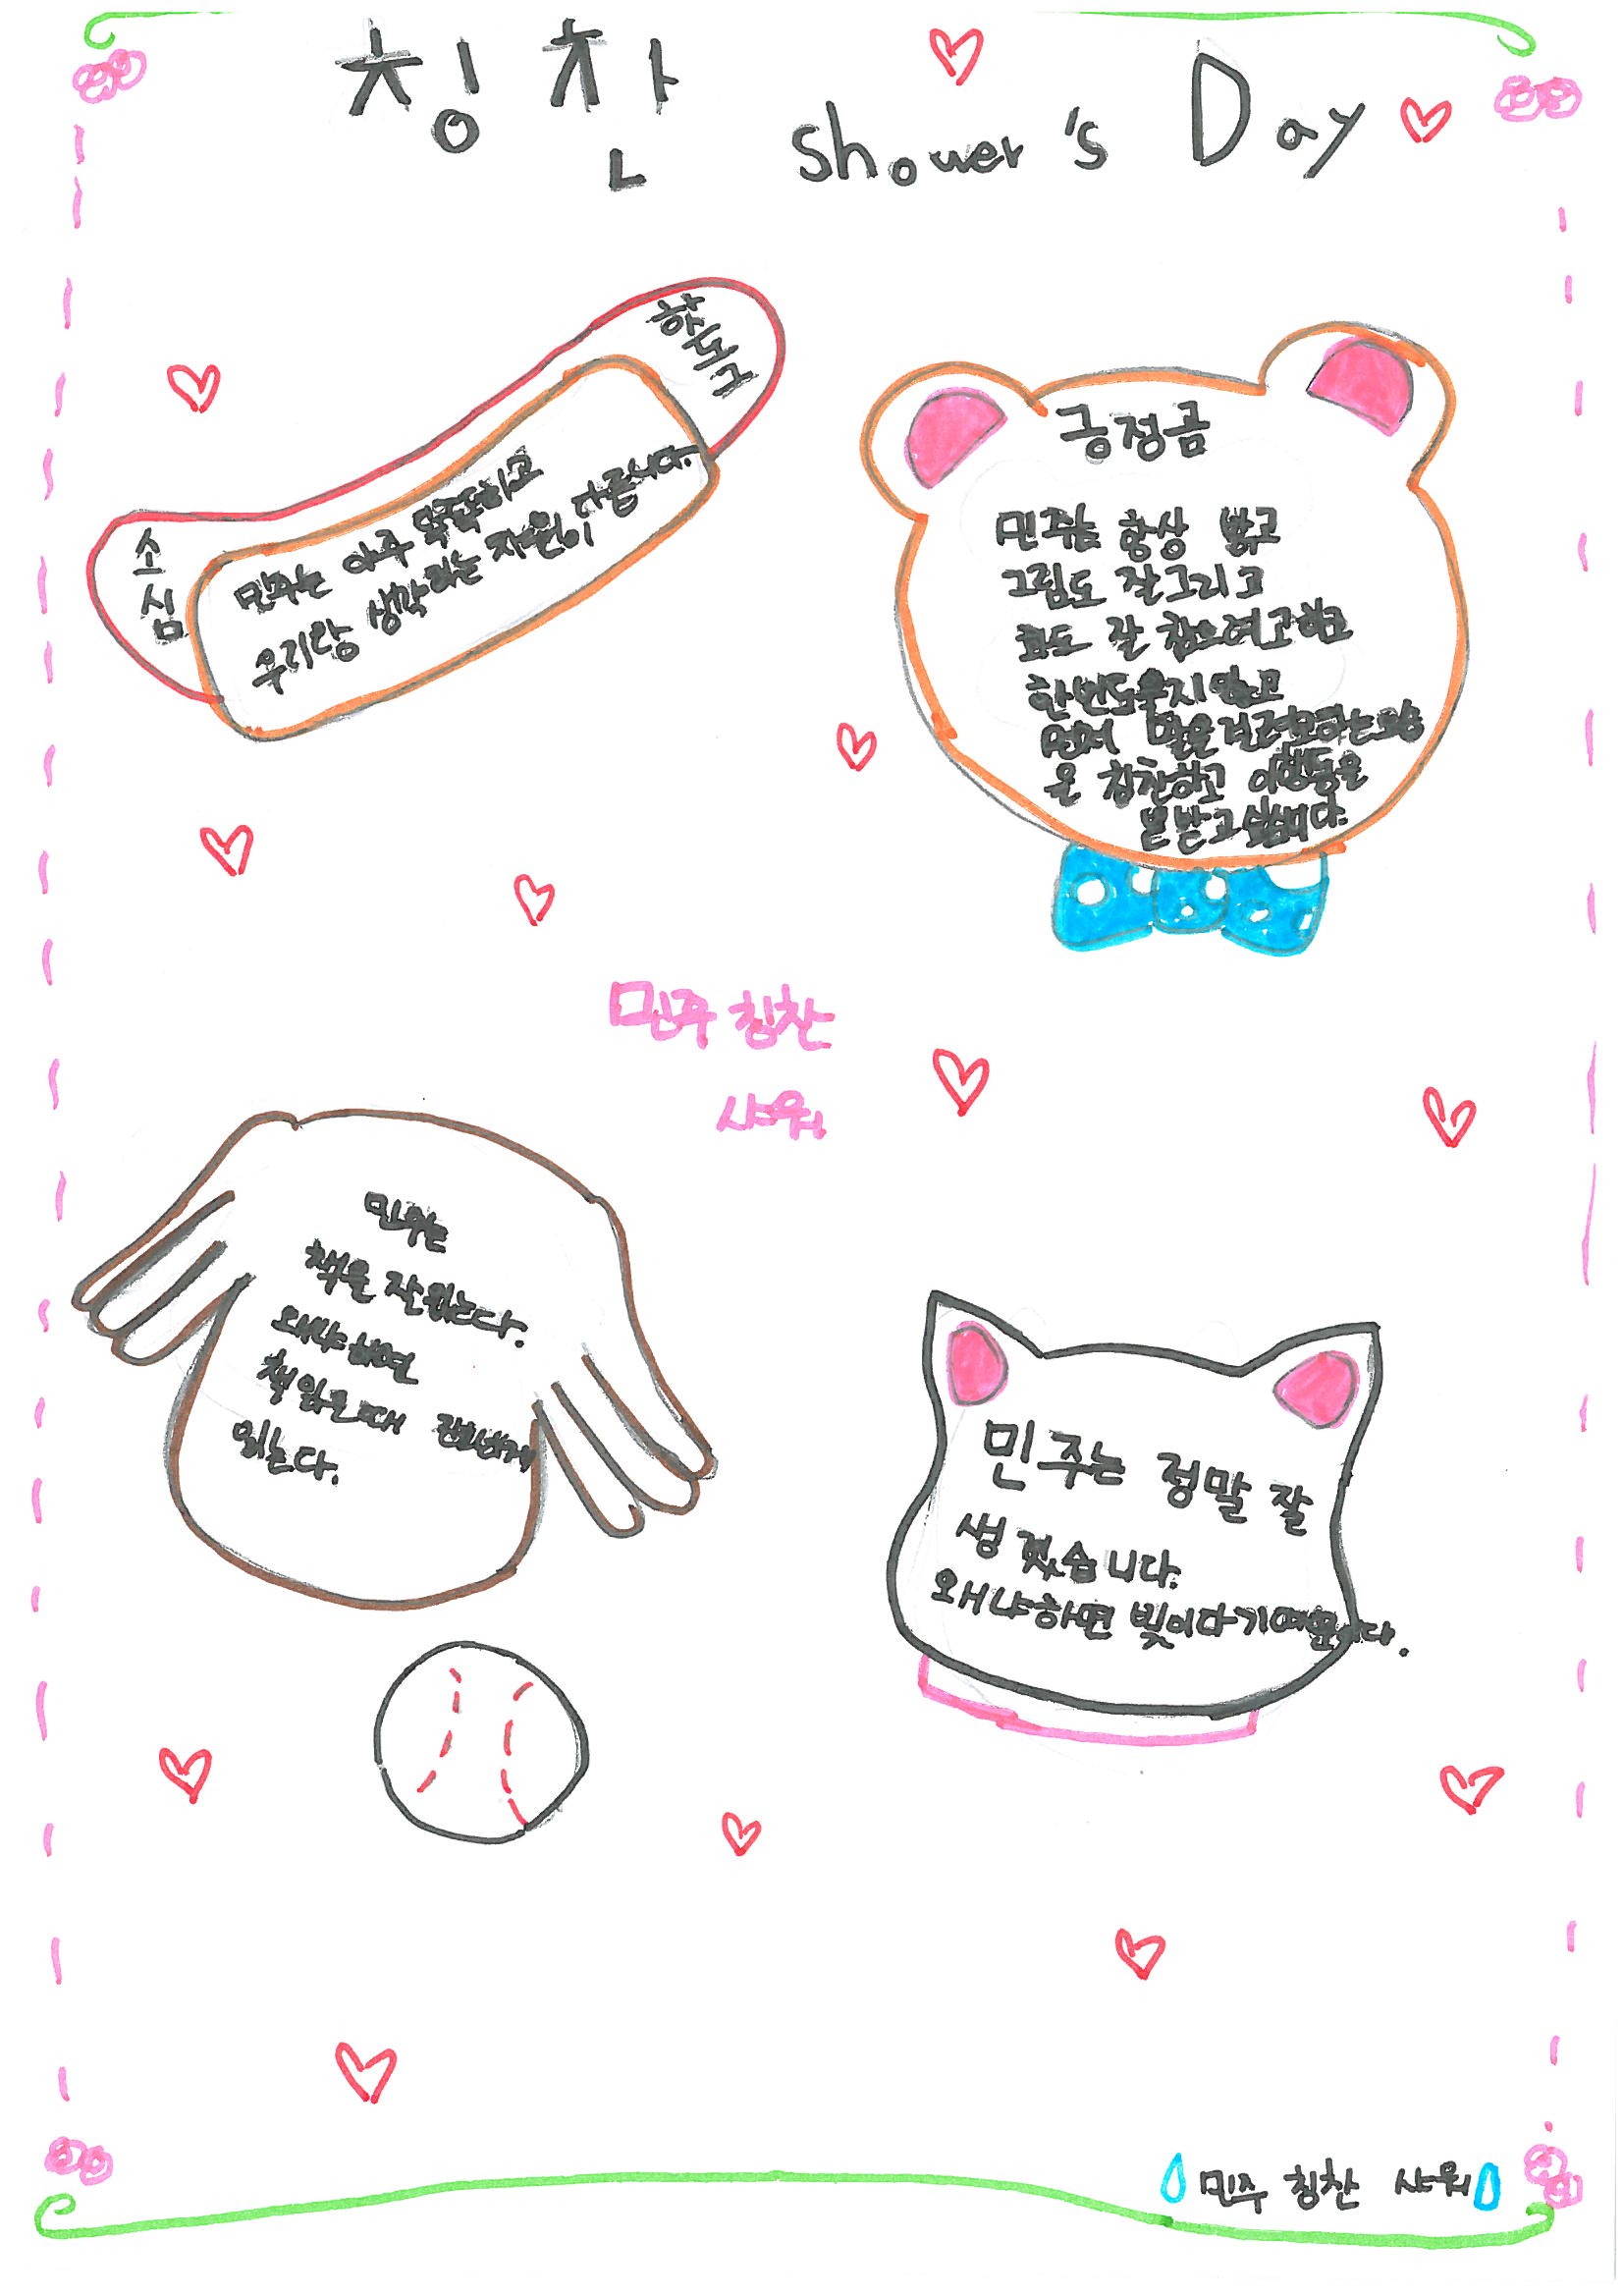 칭찬 shower's Day
핫도그
소심
민주는 아주 똑똑하고
우리랑 생각하는 차원이 다릅니다.
긍정곰
민주는 항상 밝고
그림도 잘그리고
잘 참으려고하고
한번도울지않고
먼저 말을건려고하는모습
을 칭찬하고 이행동을
본받고싶습니다.
민주 칭찬
샤워
민주는
책을 잘읽는다.
왜냐하면
책읽을때
읽는다.
민주는 정말 잘
생겼습니다.
왜냐하면 빛이다기
민주 칭찬 샤워